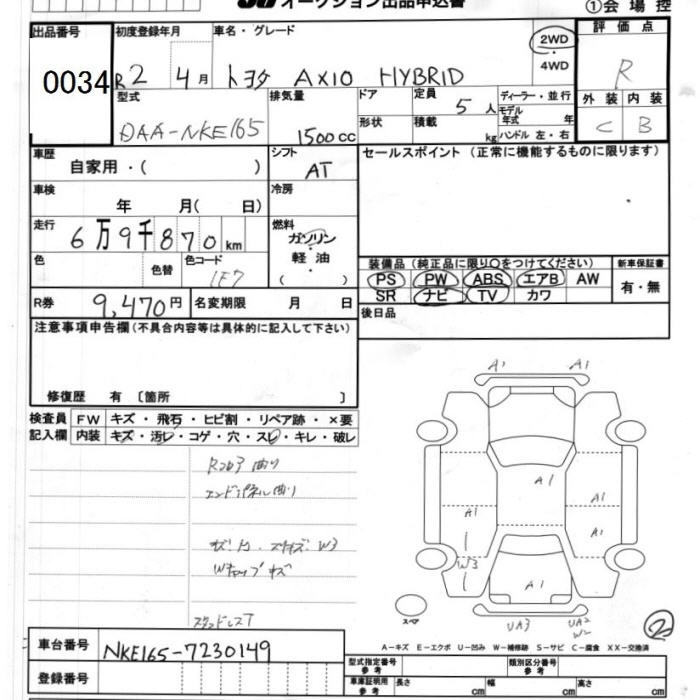 オークション出品申込書
①会場控
出品番号 初度登録年月 車名・グレード 2WD 評価点
0034 R2 4月 トヨタ AXIO HYBRID ・4WD R
型式 排気量 ドア 定員 5人 ディーラー・並行 外装 内装
DAA-NKE165 1500cc 形状 積載 kg モデル年式 年 ハンドル 左・右 C B
車歴 シフト セールスポイント(正常に機能するものに限ります)
自家用・( ) AT
車検 冷房
年 月( 日)
走行 燃料
6万9千870km ガソリン
色 色替 色コード 軽油
1F7 ( )
装備品(純正品に限り○をつけてください) 新車保証書
PS PW ABS エアB AW 有・無
SR ナビ TV カワ
R券 9,470円 名変期限 月 日 後日品
注意事項申告欄(不具合内容等は具体的に記入して下さい)
修復歴 有 〔箇所 〕
検査員 FW キズ・飛石・ヒビ割・リペア跡・×要
記入欄 内装 キズ・汚レ・コゲ・穴・スレ・キレ・破レ
エンドパネル曲り
W3
A1 A1
A1
A1 A1
A1
W3
A1
スペア UA3 UA2
W2
②
A-キズ E-エクボ U-凹み W-補修跡 S-サビ C-腐食 XX-交換済
車台番号 NKE165-7230149
登録番号
型式指定番号 参考 類別区分番号 参考
車庫証明用 参考 長さ cm 幅 cm 高さ cm